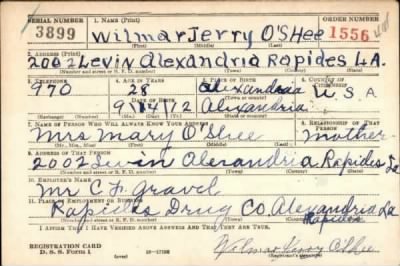 SERIAL NUMBER 1. NAME (Print) ORDER NUMBER
3899 Wilmar Jerry O'Shee 1556
(First) (Middle) (Last)
2. ADDRESS (Print)
2002 Levin Alexandria Rapides LA.
(Number and street or R. F. D. number) (Town) (County) (State)
3. TELEPHONE 4. AGE IN YEARS 5. PLACE OF BIRTH 6. COUNTRY OF CITIZENSHIP
970 28 Alexandria U.S.A
DATE OF BIRTH (Town or county)
Alexandria
(Mo.) (Day) (Yr.) (State or country)
7. NAME OF PERSON WHO WILL ALWAYS KNOW YOUR ADDRESS 8. RELATIONSHIP OF THAT PERSON
Mrs Mary O'Shee Mother
(Mr., Mrs., Miss) (First) (Middle) (Last)
9. ADDRESS OF THAT PERSON
2002 Levin Alexandria Rapides La
(Number and street or R. F. D. number) (Town) (County) (State)
10. EMPLOYER'S NAME
Mr C F Gravel
11. PLACE OF EMPLOYMENT OR BUSINESS
Rapides Drug Co, Alexandria La
Rapides
(Number and street or R. F. D. number) (Town) (County) (State)
I AFFIRM THAT I HAVE VERIFIED ABOVE ANSWERS AND THAT THEY ARE TRUE.
REGISTRATION CARD
D. S. S. Form 1 (over) 16-17105 Wilmar Jerry O'Shee